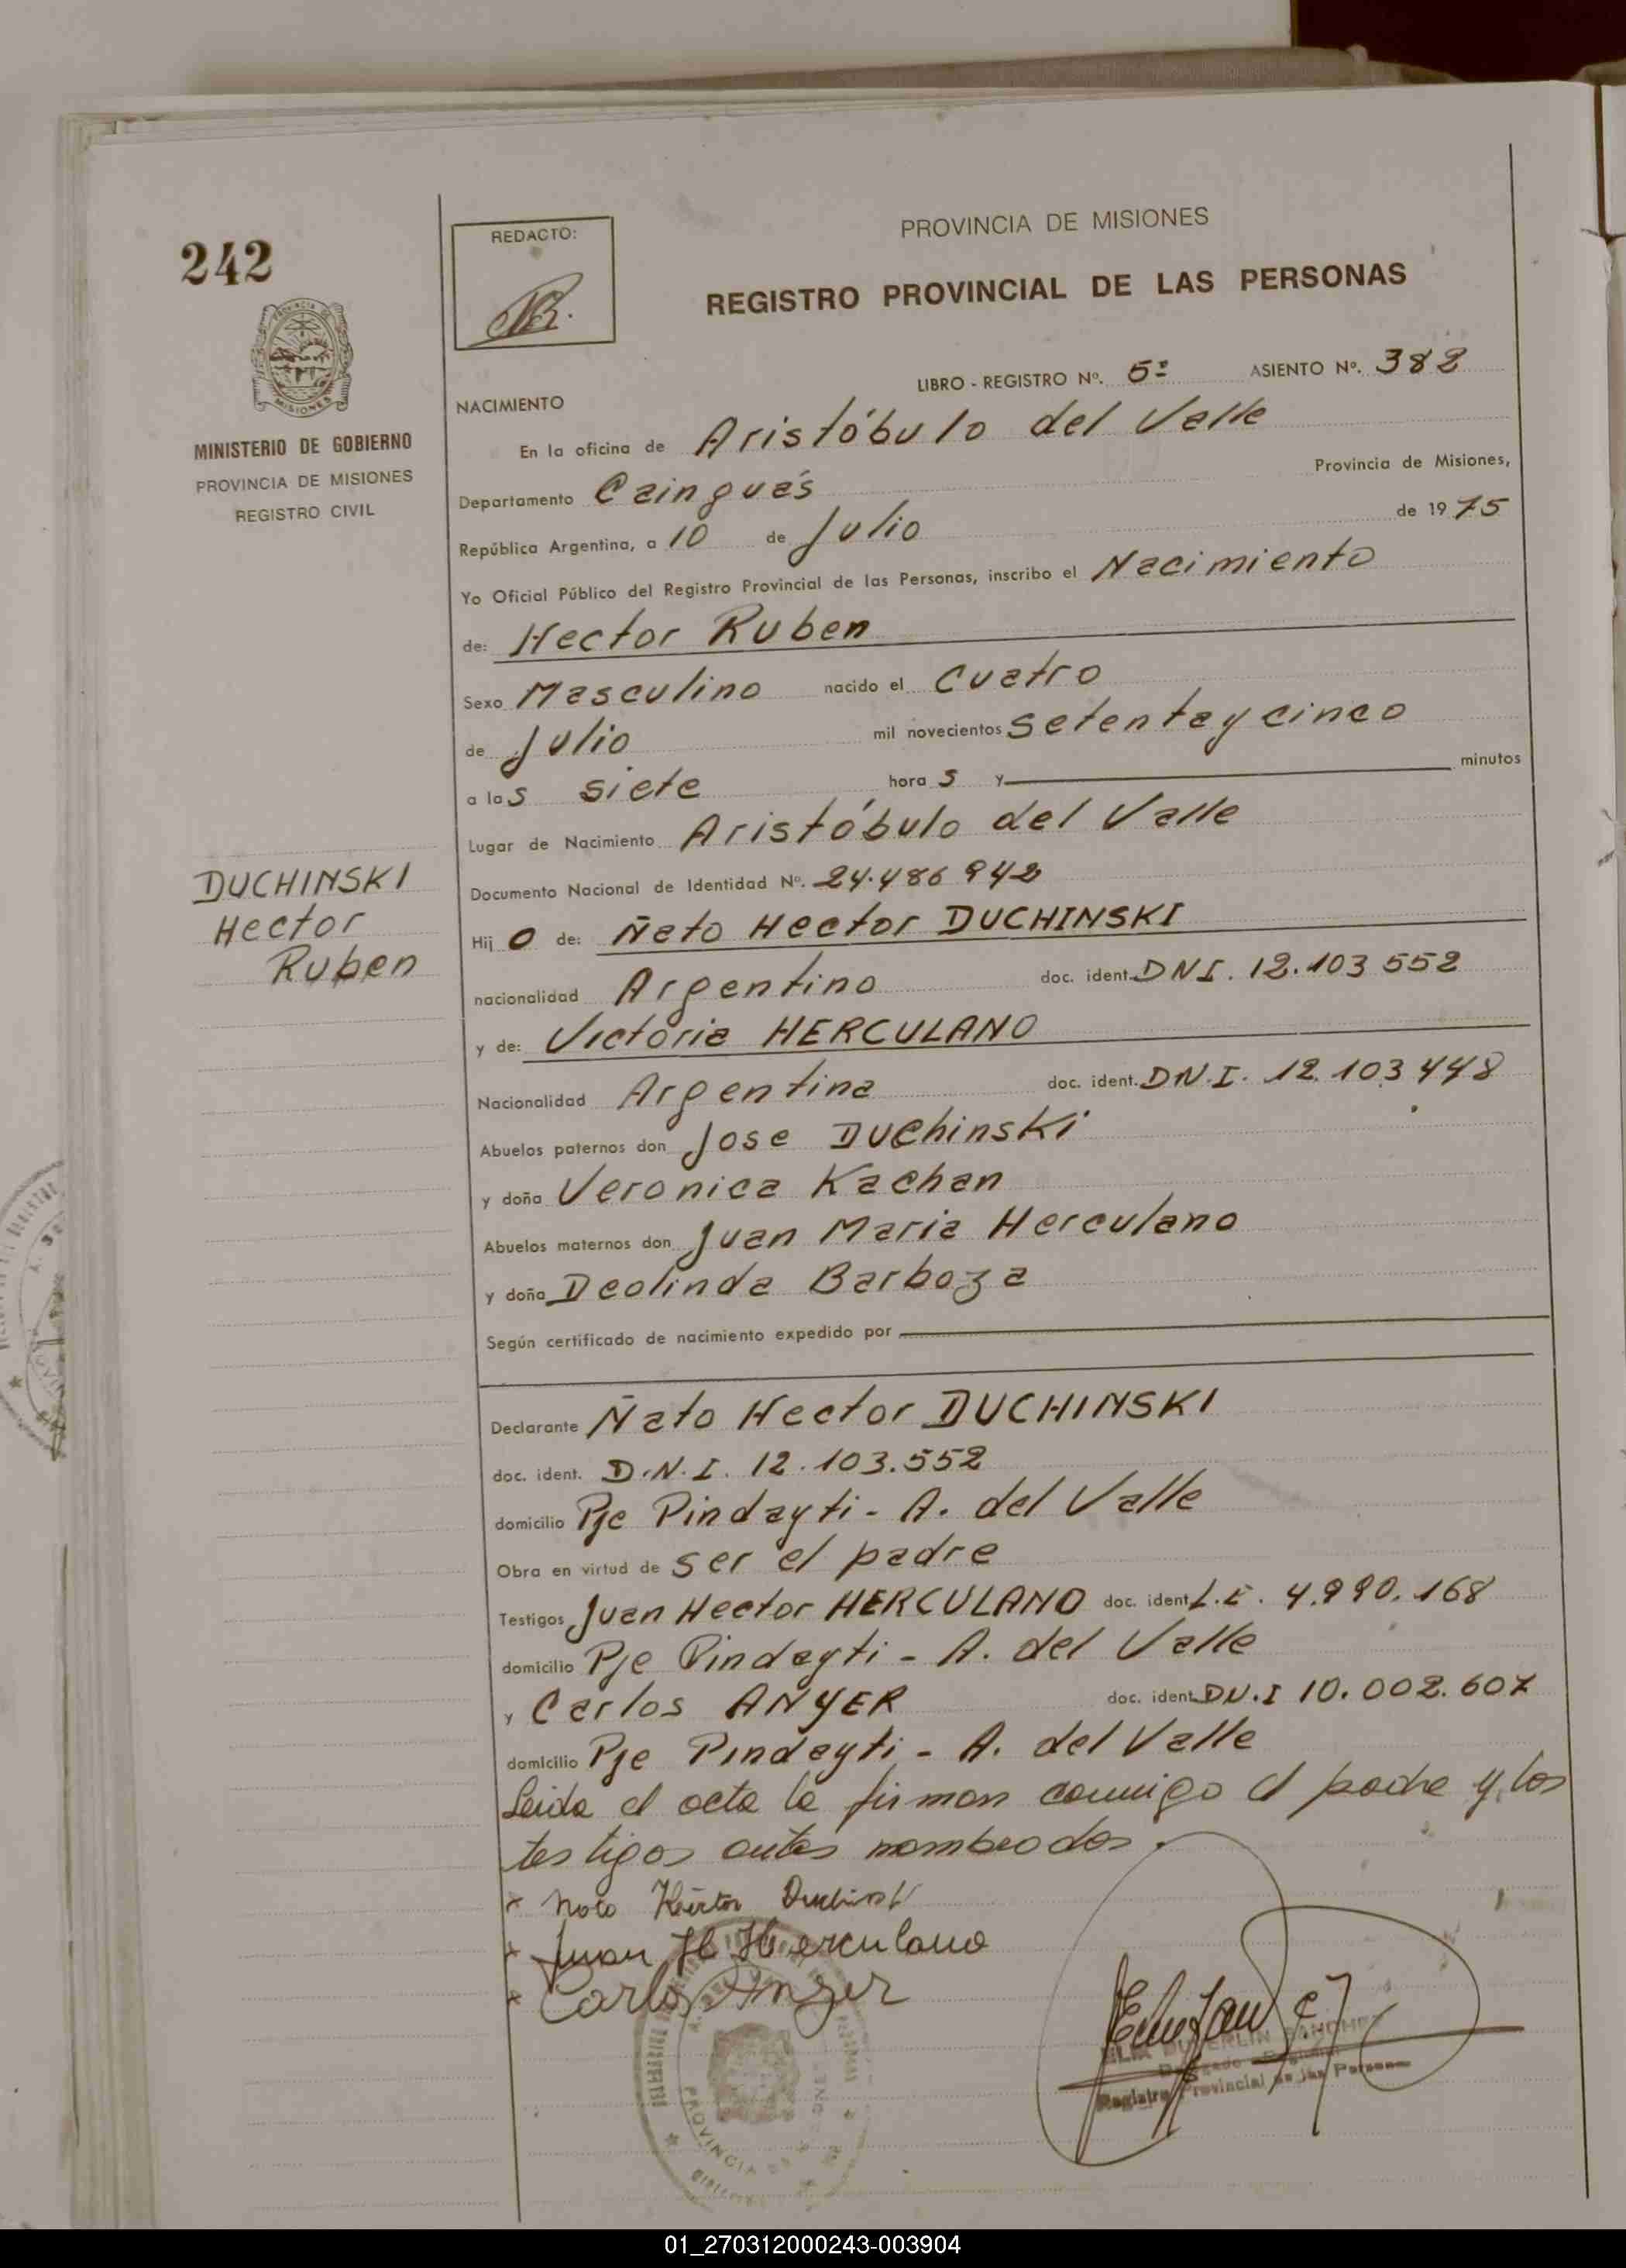 242
PROVINCIA DE
MISIONES
MINISTERIO DE GOBIERNO
PROVINCIA DE MISIONES
REGISTRO CIVIL
DUCHINSKI
Hector
Ruben
REDACTO:
PROVINCIA DE MISIONES
REGISTRO PROVINCIAL DE LAS PERSONAS
LIBRO - REGISTRO Nº. 5º ASIENTO Nº. 382
NACIMIENTO
En la oficina de Aristóbulo del Valle
Departamento Cainguás Provincia de Misiones,
República Argentina, a 10 de Julio de 1975
Yo Oficial Público del Registro Provincial de las Personas, inscribo el Nacimiento
de: Hector Ruben
Sexo Masculino nacido el Cuatro
de Julio mil novecientos Setenta y cinco
a las siete horas y minutos
Lugar de Nacimiento Aristóbulo del Valle
Documento Nacional de Identidad Nº. 24.486 942
Hijo de: Ñato Hector DUCHINSKI
nacionalidad Argentino doc. ident. DNI. 12.103 552
y de: Victoria HERCULANO
Nacionalidad Argentina doc. ident. DN.I. 12.103 448
Abuelos paternos don Jose Duchinski
y doña Veronica Kachan
Abuelos maternos don Juan Maria Herculano
y doña Deolinda Barboza
Según certificado de nacimiento expedido por
Declarante Ñato Hector DUCHINSKI
doc. ident. D.N.I. 12.103.552
domicilio Pje Pindayti - A. del Valle
Obra en virtud de ser el padre
Testigos Juan Hector HERCULANO doc. ident L.E. 4.990.168
domicilio Pje Pindayti - A. del Valle
y Carlos ANYER doc. ident DN.I 10.002.607
domicilio Pje Pindayti - A. del Valle
Leida el acta la firman conmigo el padre y los
testigos antes nombrados.
x Nato Hector Duchinski
x Juan H Herculano
x Carlos Anyer
PROVINCIA DE
MISIONES
Registro Provincial de las Personas
01_270312000243-003904